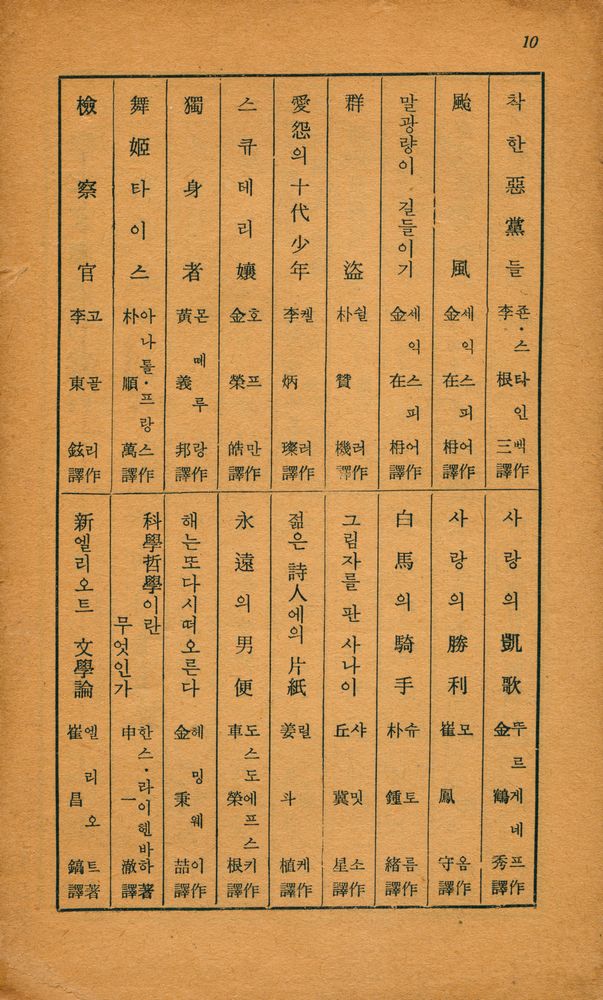 10
착한 惡黨들
죤·스타인백作
李根三譯
颱風
세익스피어作
金在枏譯
말광량이 길들이기
세익스피어作
金在枏譯
群盜
쉴러作
朴贊機譯
愛怨의 十代少年
켈러作
李炳璨譯
스큐테리孃
호프만作
金榮皓譯
獨身者
몬떼루랑作
黃義邦譯
舞姬타이스
아나톨·프랑스作
朴順萬譯
檢察官
고골리作
李東鉉譯
사랑의 凱歌
뚜르게네프作
金鶴秀譯
사랑의 勝利
모옴作
崔鳳守譯
白馬의 騎手
슈토름作
朴鍾緖譯
그림자를 판 사나이
샤밋소作
丘冀星譯
젊은 詩人에의 片紙
릴케作
姜斗植譯
永遠의 男便
도스도에프스키作
車榮根譯
해는또다시떠오른다
헤밍웨이作
金秉喆譯
科學哲學이란
무엇인가
한스·라이헨바하著
申一澈譯
新엘리오트 文學論
엘리오트著
崔昌鎬譯